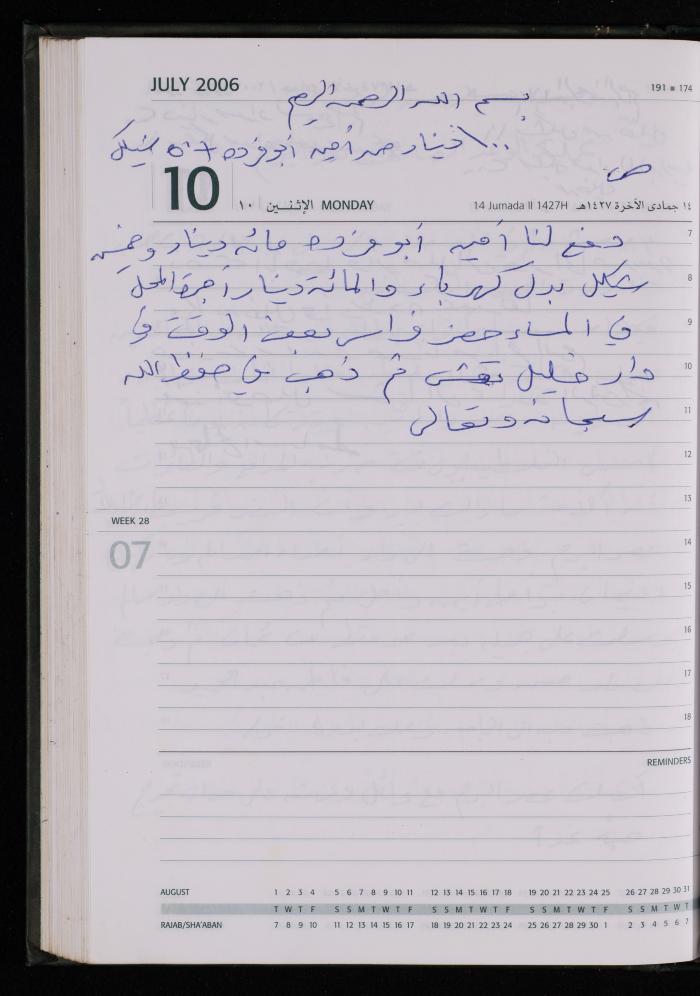 JULY 2006
191 ■ 174
بسم الله الرحمن الرحيم
١٠٠ دينار من أمين أبو فردة + ٥٠ شيكل
ص
10 ١٠ الإثنين MONDAY
14 Jumada II 1427H ١٤ جمادى الآخرة ١٤٢٧هـ
دفع لنا أمين أبو فردة مائة دينار وخمسين
شيكل بدل كهرباء والمائة دينار أجرة المحل
في المساء حضر فراس بعض الوقت في
دار خليل ثم ذهب في حفظ الله
سبحانه وتعالى
7
8
9
10
11
12
13
WEEK 28
07
14
15
16
17
18
REMINDERS
AUGUST 1 2 3 4 5 6 7 8 9 10 11 12 13 14 15 16 17 18 19 20 21 22 23 24 25 26 27 28 29 30 31
T W T F S S M T W T F S S M T W T F S S M T W T F S S M T W T
RAJAB/SHA'ABAN 7 8 9 10 11 12 13 14 15 16 17 18 19 20 21 22 23 24 25 26 27 28 29 30 1 2 3 4 5 6 7